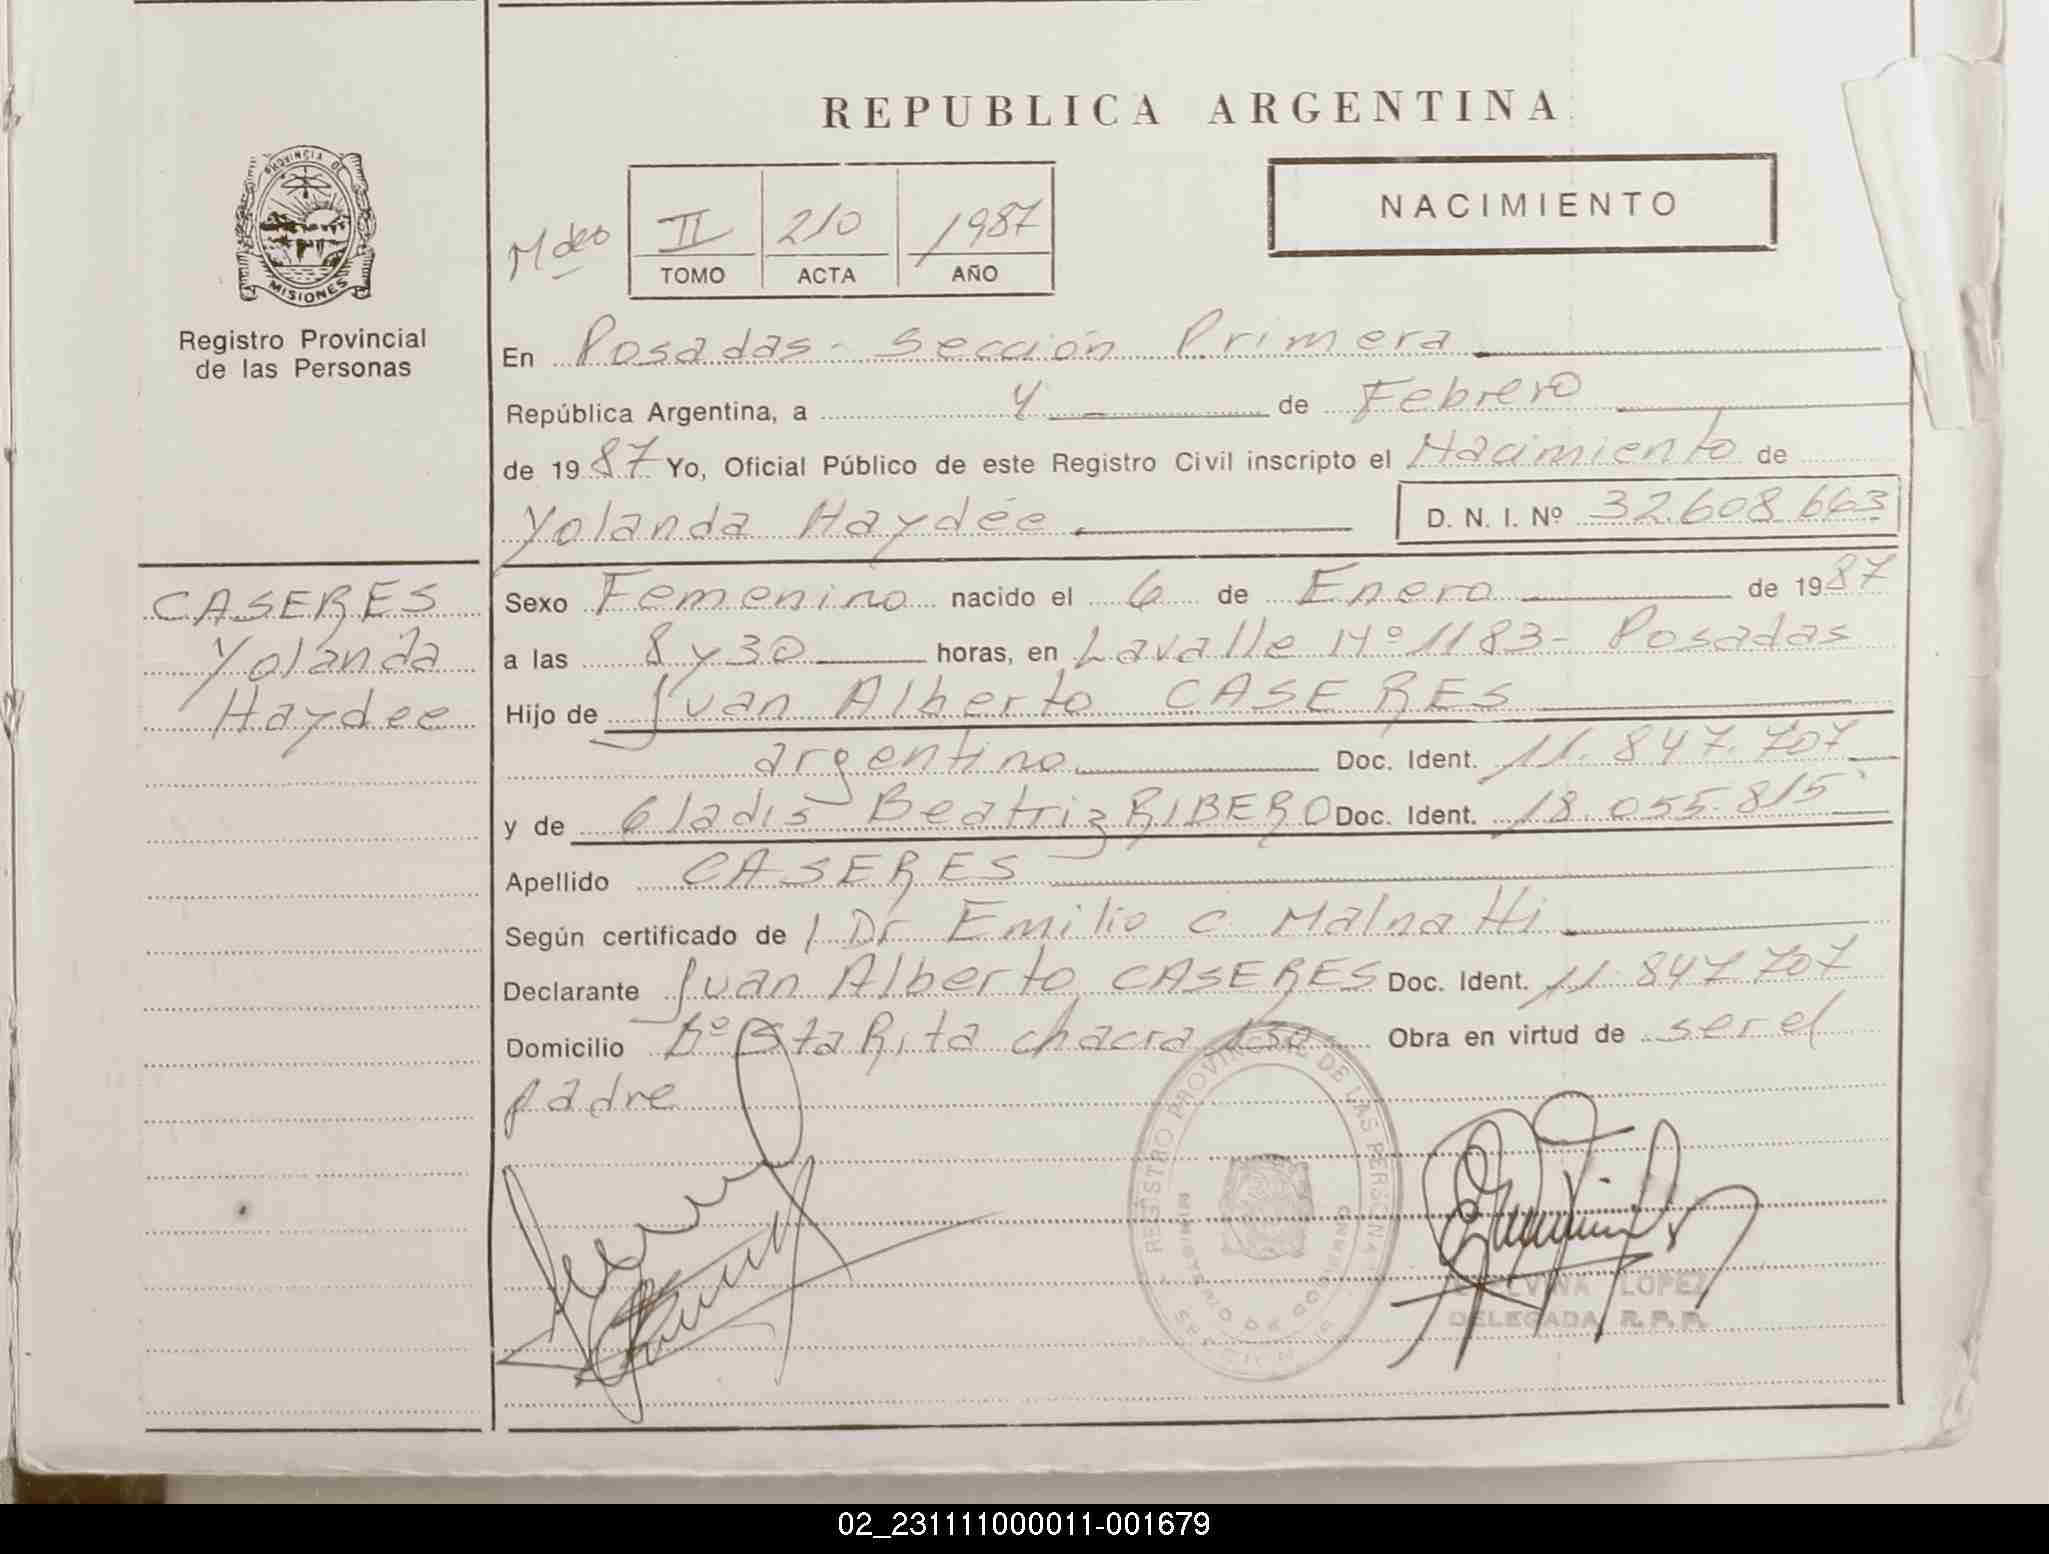 REPUBLICA ARGENTINA
PROVINCIA DE
MISIONES
Registro Provincial
de las Personas
NACIMIENTO
II 210 1987
TOMO ACTA AÑO
En Posadas - Sección Primera
República Argentina, a 4 de Febrero
de 1987 Yo, Oficial Público de este Registro Civil inscripto el Nacimiento de
Yolanda Haydée D. N. I. Nº 32.608.663
CASERES
Yolanda
Haydee
Sexo Femenino nacido el 6 de Enero de 1987
a las 8 y 30 horas, en Lavalle Nº 1183 - Posadas
Hijo de Juan Alberto CASERES
argentino Doc. Ident. 11.847.707
y de Gladis Beatriz RIBERO Doc. Ident. 18.055.815
Apellido CASERES
Según certificado de l Dr Emilio C Malnatti
Declarante Juan Alberto CASERES Doc. Ident. 11.847.707
Domicilio Bº Sta Rita chacra 130 Obra en virtud de ser el
padre
REGISTRO PROVINCIAL DE LAS PERSONAS
MINISTERIO DE GOBIERNO
LOPEZ
DELEGADA R.P.P.
02_231111000011-001679